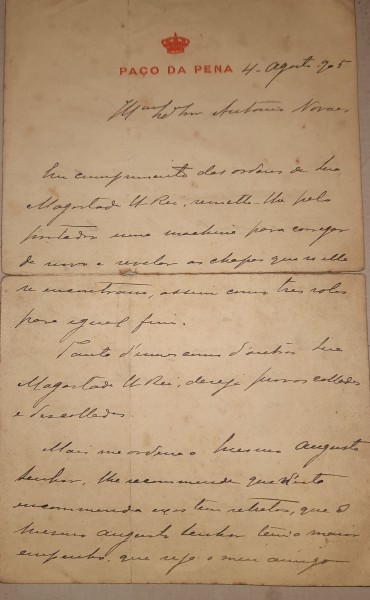 PAÇO DA PENA 4-Agosto-905
Illmo Sr Antonio Novaes
Em cumprimento das ordens de Sua
Magestade El-Rei, remetto-lhe pelo
portador uma machina para carregar
de novo e revelar as chapas que n'ella
se encontram, assim como tres rolos
para igual fim.
Tanto d'umas como d'outros Sua
Magestade El-Rei, deseja provas colladas
e descolladas.
Mais me ordena o mesmo Augusto
Senhor, lhe recommende que d'esta
encommenda cujos retratos, que o
mesmo augusto Senhor tem o maior
empenho, que seja o meu amigo